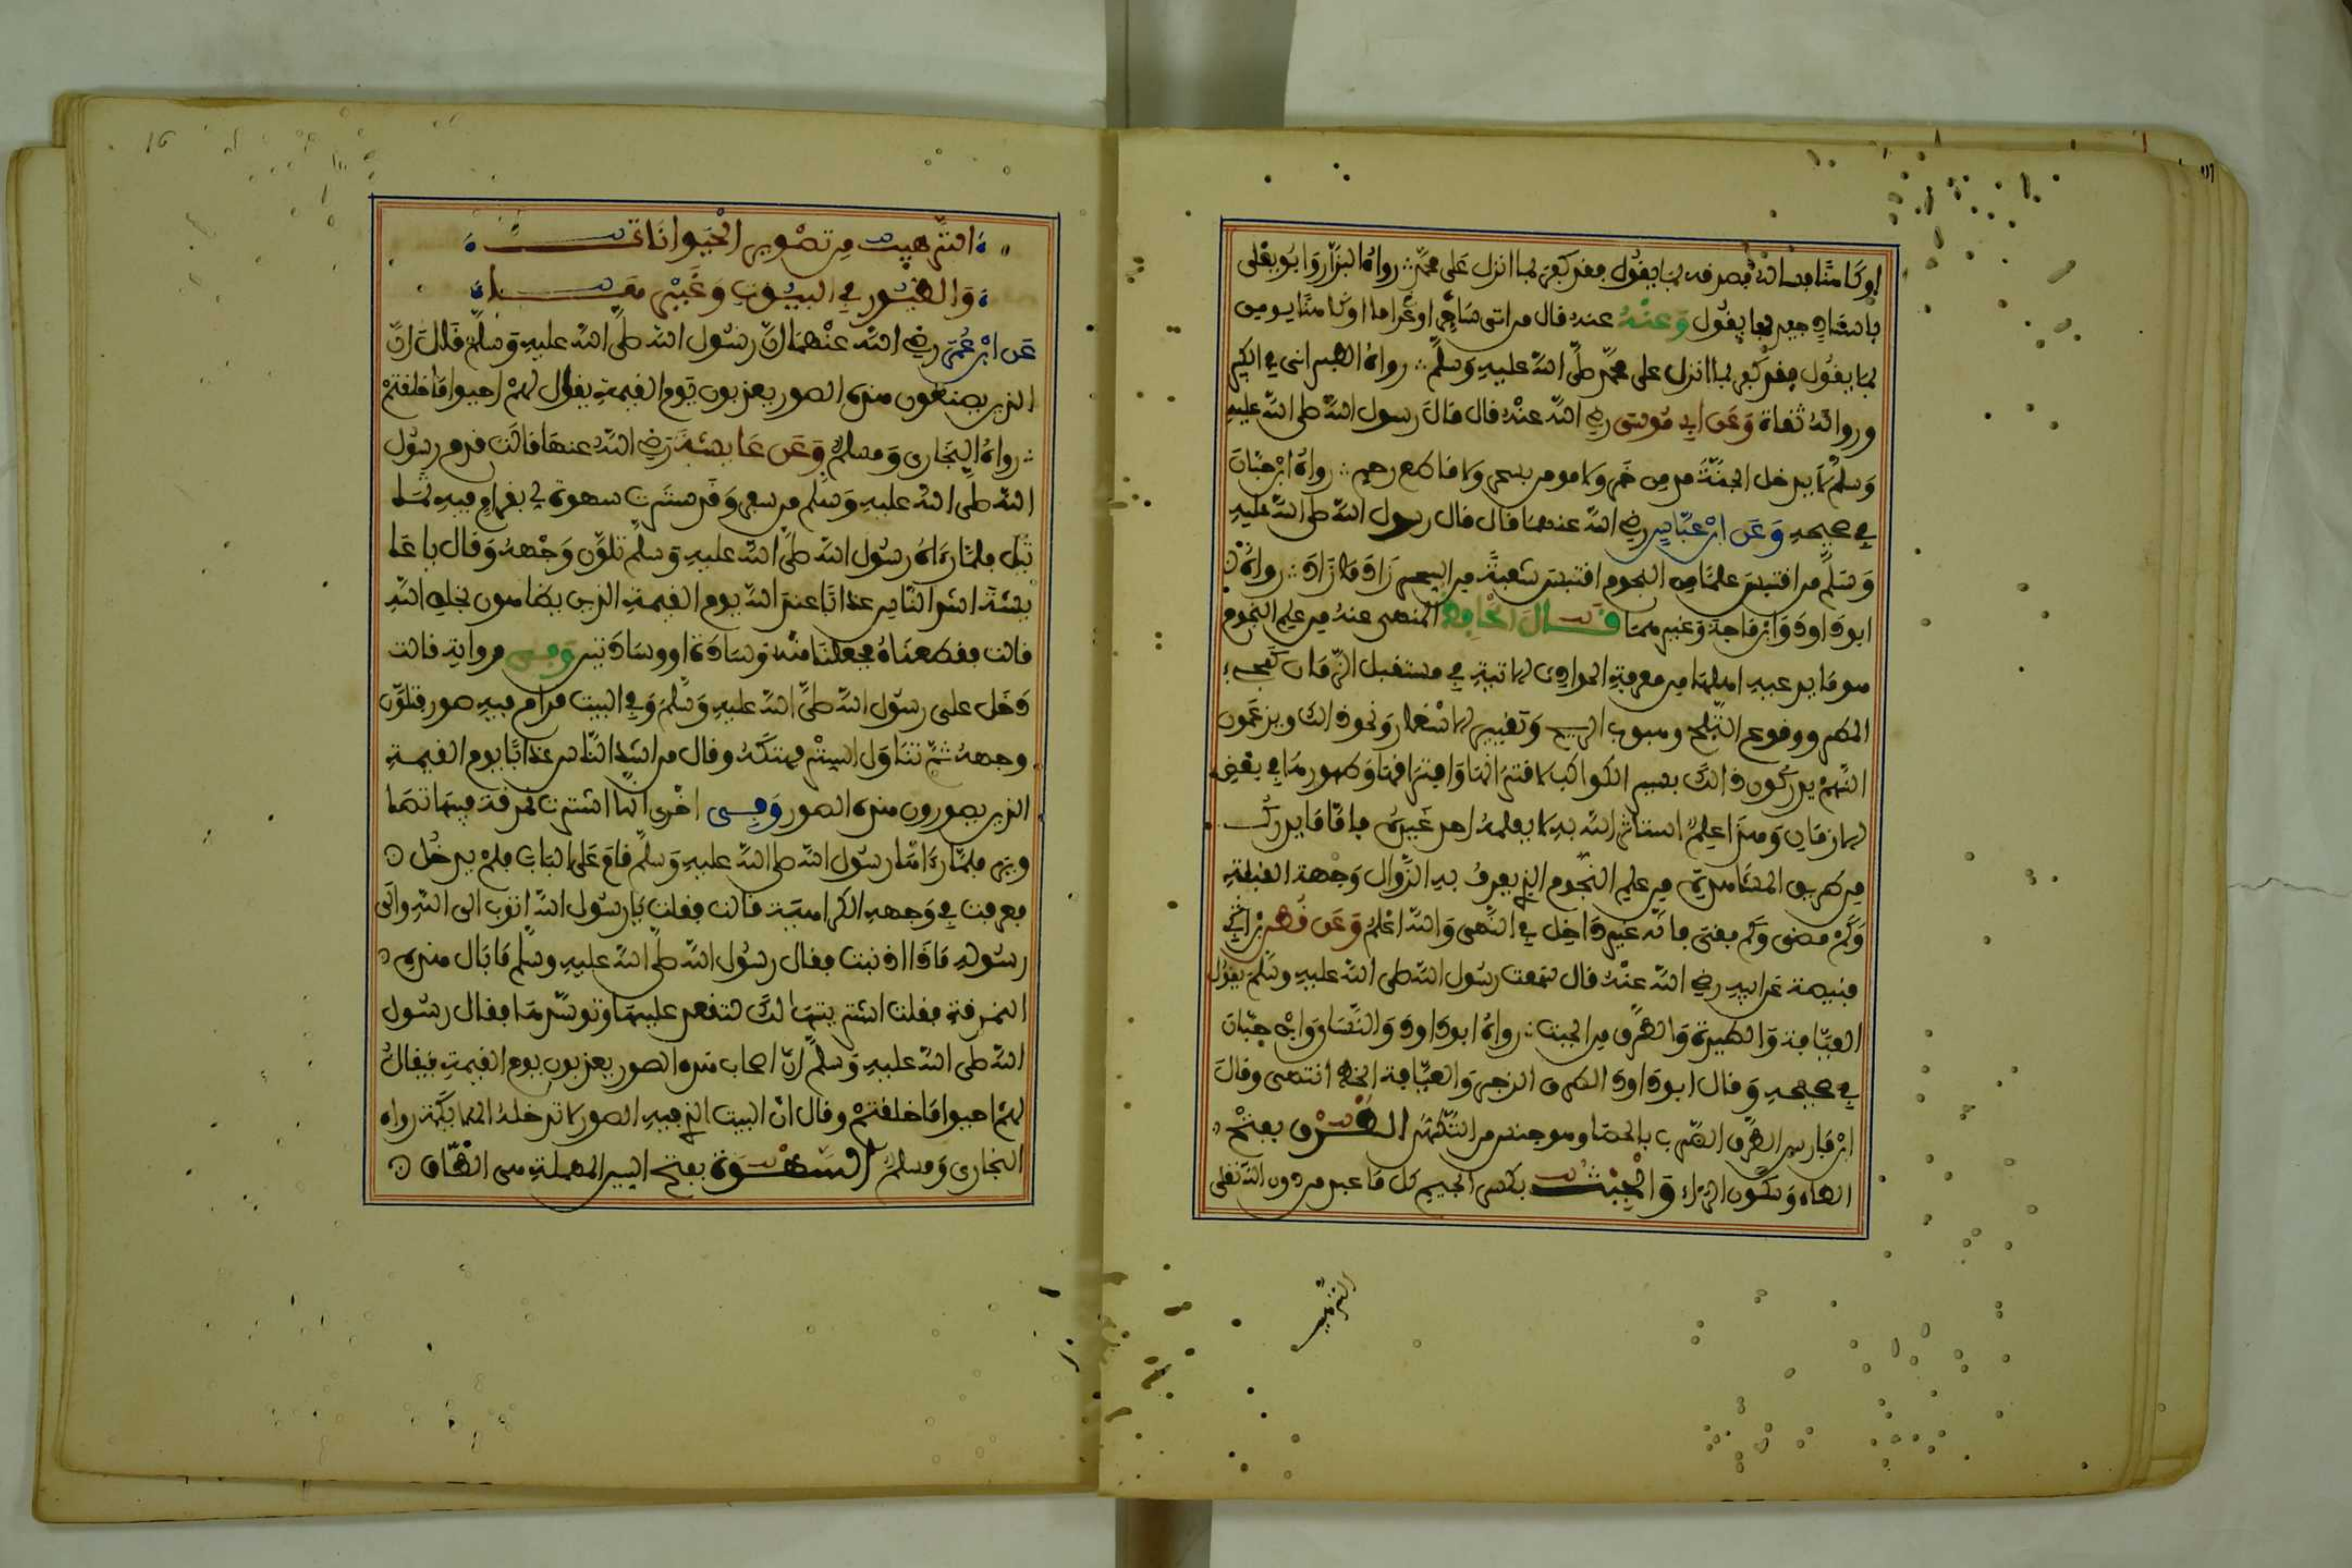 او كاهنا فصدقه بما يقول فقد كفر بما انزل على محمد رواه البزار وابو يعلى
باسناد جيد بما يقول وعنه عنه قال من اتى ساحرا او عرافا او كاهنا يومن
بما يقول فقد كفر بما انزل على محمد صلى الله عليه وسلم رواه الطبراني في الكبير
ورواته ثقاة وعن ابي موسى رضي الله عنه قال قال رسول الله صلى الله عليه
وسلم لا يدخل الجنة مدمن خمر ولا مومن بسحر ولا قاطع رحم رواه ابن حبان
في صحيحه وعن ابن عباس رضي الله عنهما قال قال رسول الله صلى الله عليه
وسلم من اقتبس علما من النجوم اقتبس شعبة من السحر زاد ما زاد رواه
ابو داود وابن ماجة وغيرهما قال الحافظ المنهى عنه من علم النجوم
هو ما يدعيه اهلها من معرفة الحوادث الاتية في مستقبل الزمان كمجيء
المطر ووقوع الثلج وهبوب الريح وتغيير الاسعار ونحو ذالك ويزعمون
انهم يدركون ذالك بسير الكواكب لاقترانها وافتراقها وظهورها في بعض
الازمان وهذا علم استاثر الله به لا يعلمه احد غيره فاما ما يدرك
من طريق المشاهدة من علم النجوم الذي يعرف به الزوال وجهة القبلة
وكم مضى وكم بقى فانه غير داخل في النهى والله اعلم وعن قطن بن ابي
قبيصة عن ابيه رضي الله عنه قال سمعت رسول الله صلى الله عليه وسلم يقول
العيافة والطيرة والطرق من الجبت رواه ابو داود والنساي وابن حبان
في صحيحه وقال ابو داود الطرق الزجر والعيافة الخط انتهى وقال
ابن فارس الطرق الضرب بالحصا وهو جنس من التكهن الطرق بفتح
الطاء وسكون الراء والجبت بكسر الجيم كل ما عبد من دون الله تعلى
الترهيب
16
الترهيب من تصوير الحيوانات
والطيور في البيوت وغيرها
عن ابن عمر رضي الله عنهما ان رسول الله صلى الله عليه وسلم قال ان
الذين يصنعون هذه الصور يعذبون يوم القيمة يقال لهم احيوا ما خلقتم
رواه البخاري ومسلم وعن عايشة رضي الله عنها قالت قدم رسول
الله صلى الله عليه وسلم من سفر وقد سترت سهوة لي بقرام فيه تما
ثيل فلما رءاه رسول الله صلى الله عليه وسلم تلون وجهه وقال يا عا
يشة اشد الناس عذابا عند الله يوم القيمة الذين يضاهون بخلق الله
قالت فقطعناه فجعلنا منه وسادة او وسادتين وفي رواية قالت
دخل على رسول الله صلى الله عليه وسلم وفي البيت قرام فيه صور فتلون
وجهه ثم تناول الستر فهتكه وقال من اشد الناس عذابا يوم القيمة
الذين يصورون هذه الصور وفي اخرى انها اشترت نمرقة فيها تصا
وير فلما رءاها رسول الله صلى الله عليه وسلم قام على الباب فلم يدخل
فعرفت في وجهه الكراهية قالت فقلت يا رسول الله اتوب الى الله والى
رسوله ماذا اذنبت فقال رسول الله صلى الله عليه وسلم ما بال هذه
النمرقة فقلت اشتريتها لك لتقعد عليها وتوسدها فقال رسول
الله صلى الله عليه وسلم ان اصحاب هذه الصور يعذبون يوم القيمة فيقال
لهم احيوا ما خلقتم وقال ان البيت الذي فيه الصور لا تدخله الملايكة رواه
البخاري ومسلم السهوة بفتح السين المهملة هى الطاق